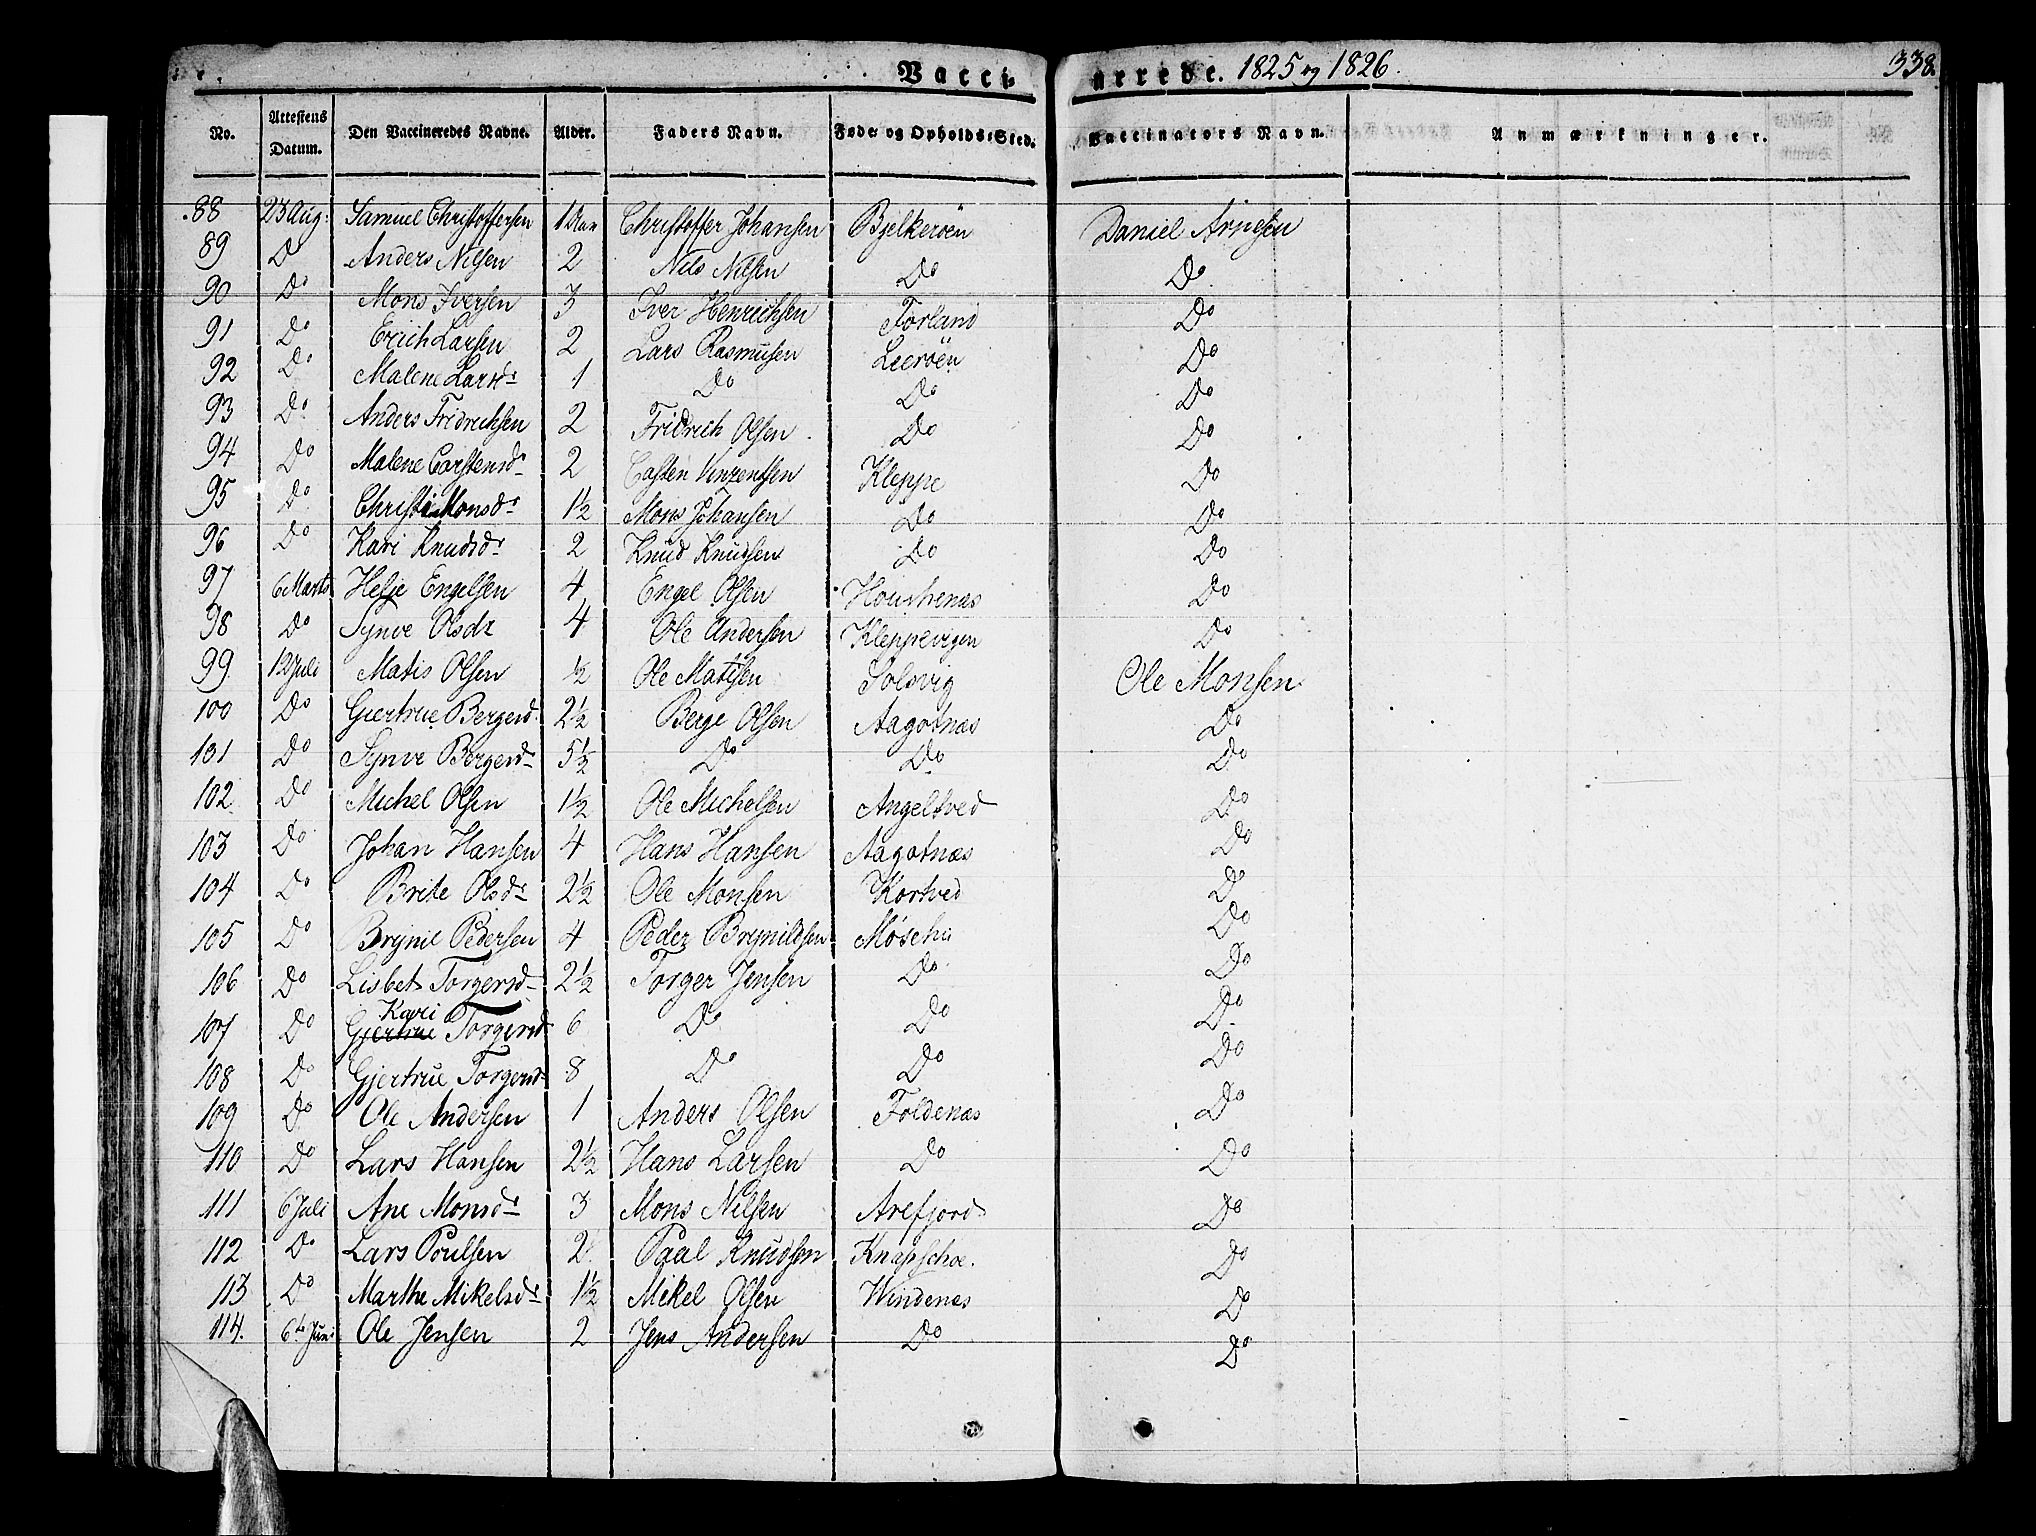 Vacci- nerrede. 1825 og 1826. 338.
No. Attestens Datum. Den Vaccineredes Navne. Alder. Faders Navn. Føde- og Opholds-Sted. Vaccinators Navn. Anmærkninger.
88 23 Aug: Samuel Christoffersen 1 Aar Christoffer Johansen Bjelkeröen Daniel Arnesen
89 Do Anders Nilsen 2 Nils Nilsen Do Do
90 Do Mons Iversen 3 Iver Henrichsen Forland Do
91 Do Erich Larsen 2 Lars Rasmusen Leeröen Do
92 Do Malene Larsdr 1 Do Do Do
93 Do Anders Fridrichsen 2 Fridrich Olsen Do Do
94 Do Malene Carstensdr 2 Casten Vinzentsen Kleppe Do
95 Do Christi Monsdr 1½ Mons Johansen Do Do
96 Do Kari Knudsdr 2 Knud Knudsen Do Do
97 6 Marts Helje Engelsen 4 Engel Olsen Do
98 Do Synve Olsdr 4 Ole Andersen Kleppevigen Do
99 12 Juli Matis Olsen ½ Ole Matisen Solsvig Ole Monsen
100 Do Giertrue Bergersd. 2½ Berge Olsen Aagotnæs Do
101 Do Synve Bergersdr 5½ Do Do Do
102 Do Michel Olsen 1½ Ole Michelsen Angeltved Do
103 Do Johan Hansen 4 Hans Hansen Aagotnæs Do
104 Do Brite Olsdr 2½ Ole Monsen Kortved Do
105 Do Brynil Pedersen 4 Peder Brynildsen Do
106 Do Lisbet Torgersdr 2½ Torger Jensen Do Do
Kari
107 Do Gjertrue Torgersd 6 Do Do Do
108 Do Gjertrue Torgersdr 8 Do Do Do
109 Do Ole Andersen 1 Anders Olsen Foldenæs Do
110 Do Lars Hansen 2½ Hans Larsen Do Do
111 6 Juli Ane Monsdr 3 Mons Nilsen Arefjord Do
112 Do Lars Poulsen 2 Paal Knudsen Do
113 Do Marthe Mikelsdr 1½ Mikel Olsen Windenæs Do
114. 6te Juni Ole Jensen 2 Jens Andersen Do Do